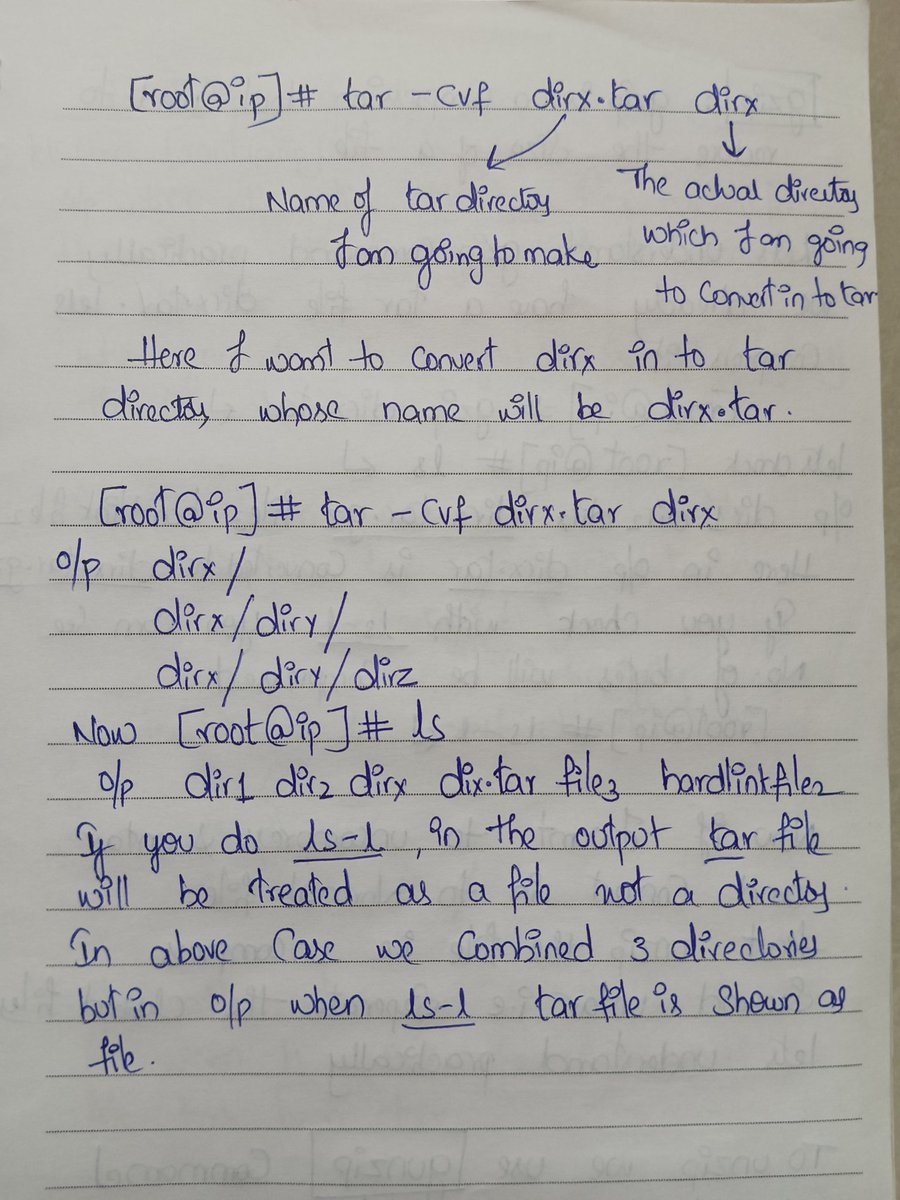 [root@ip]# tar -cvf dirx.tar dirx
Name of tar directory
I am going to make
The actual directory
which I am going
to convert in to tar
Here I want to convert dirx in to tar
directory whose name will be dirx.tar.
[root@ip]# tar -cvf dirx.tar dirx
o/p dirx/
dirx/diry/
dirx/diry/dirz
Now [root@ip]# ls
o/p dir1 dir2 dirx dix.tar file3 hardlinkfile2
If you do ls-l, in the output tar file
will be treated as a file not a directory.
In above case we combined 3 directories
but in o/p when ls-l tar file is shown as
file.